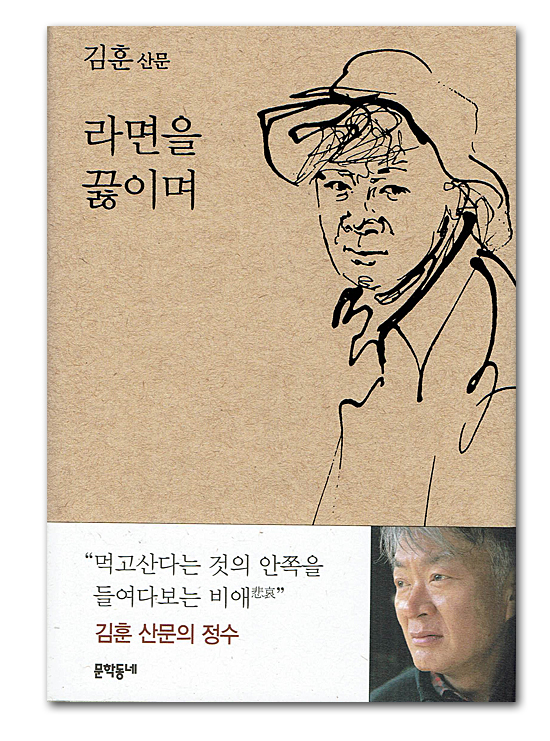 김훈 산문
라면을
끓이며
“먹고산다는 것의 안쪽을
들여다보는 비애悲哀”
김훈 산문의 정수
문학동네